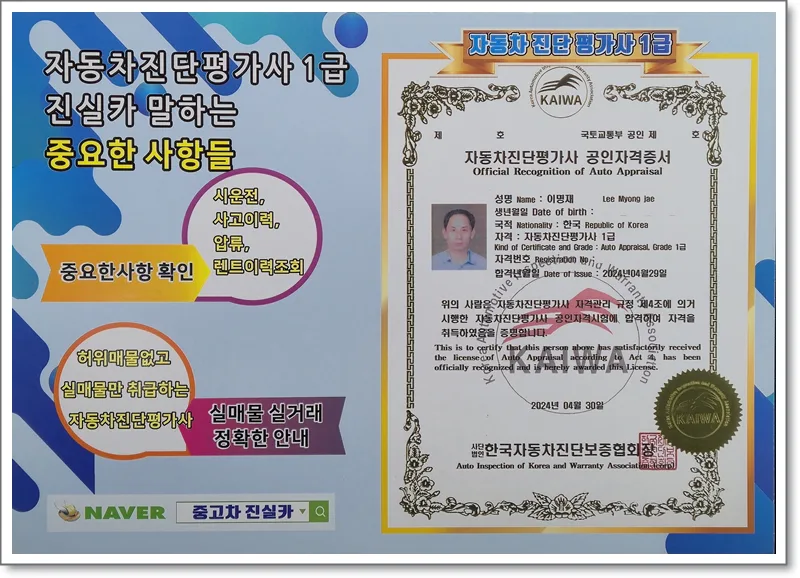 자동차진단평가사 1급
진실카 말하는
중요한 사항들
시운전,
사고이력,
압류,
렌트이력조회
중요한사항 확인
허위매물없고
실매물만 취급하는
자동차진단평가사
실매물 실거래
정확한 안내
NAVER 중고차 진실카
자동차 진단 평가사 1급
KAIWA
제 호 국토교통부 공인 제 호
자동차진단평가사 공인자격증서
Official Recognition of Auto Appraisal
성명 Name : 이명재 Lee Myong jae
생년월일 Date of birth :
국적 Nationality : 한국 Republic of Korea
자격 : 자동차진단평가사 1급
Kind of Certificate and Grade : Auto Appraisal, Grade 1급
자격번호 Registration No
합격년월일 Date of Issue : 2024년04월29일
위의 사람은 자동차진단평가사 자격관리 규정 제4조에 의거
시행한 자동차진단평가사 공인자격시험에 합격하여 자격을
취득하였음을 증명합니다.
This is to certify that this person above has satisfactorily received
the license of Auto Appraisal according to Act 4, has been
officially recognized and is hereby awarded this License.
KAIWA
2024년 04월 30일
KAIWA
사단
법인 한국자동차진단보증협회장
Auto Inspection of Korea and Warranty Association (corp)